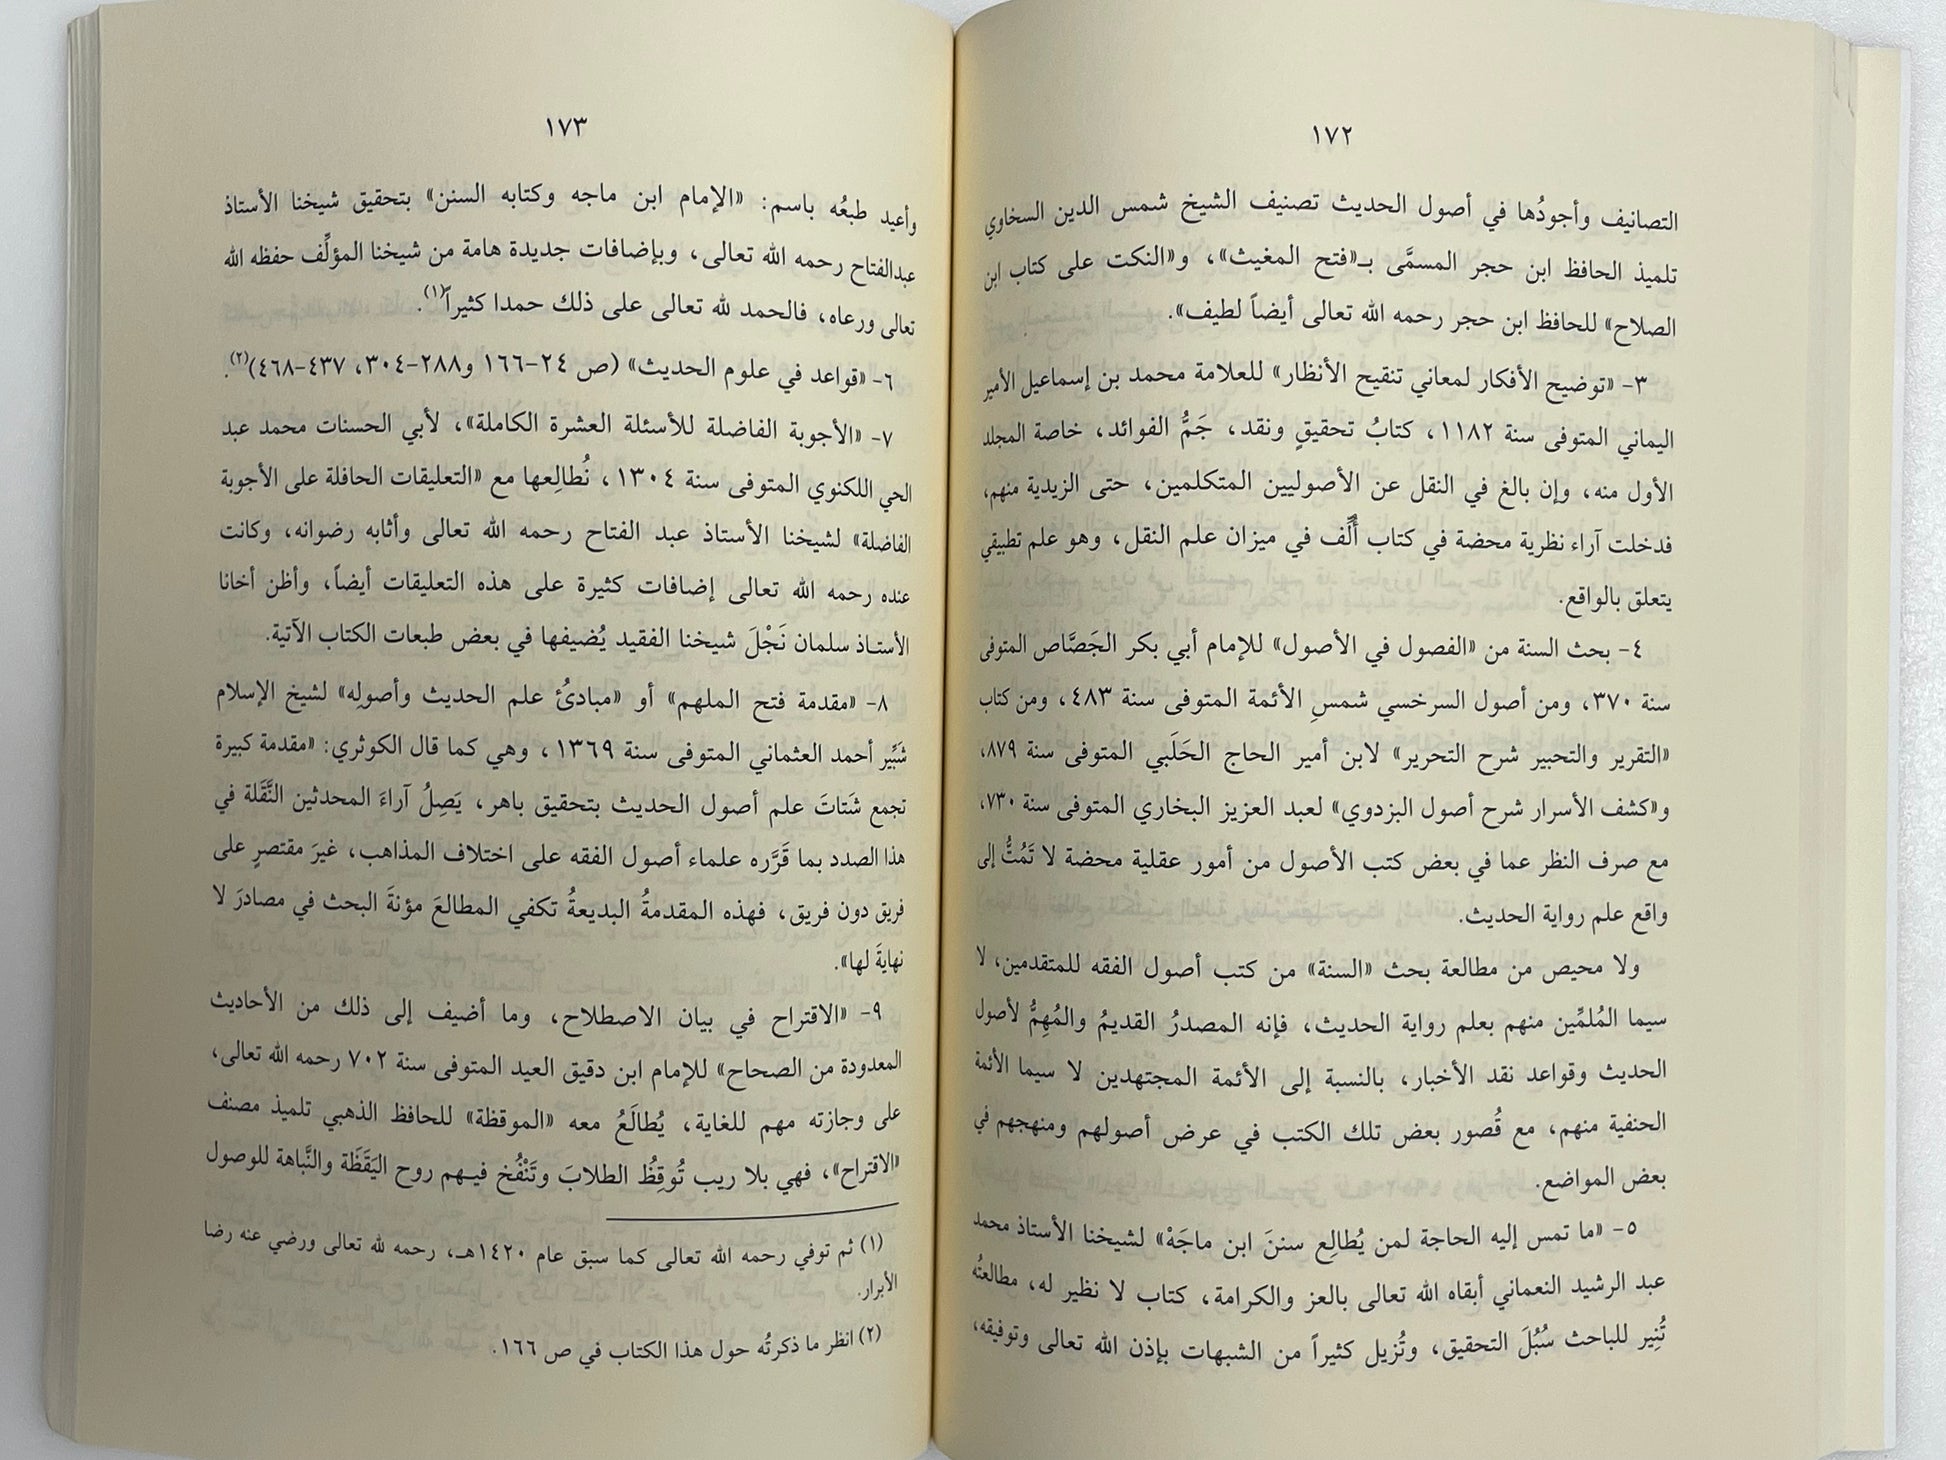 ١٧٢
التصانيف وأجودُها في أصول الحديث تصنيف الشيخ شمس الدين السخاوي
تلميذ الحافظ ابن حجر المسمَّى بـ«فتح المغيث»، و«النكت على كتاب ابن
الصلاح» للحافظ ابن حجر رحمه الله تعالى أيضاً لطيف».
٣- «توضيح الأفكار لمعاني تنقيح الأنظار» للعلامة محمد بن إسماعيل الأمير
اليماني المتوفى سنة ١١٨٢، كتابُ تحقيقٍ ونقد، جَمُّ الفوائد، خاصة المجلد
الأول منه، وإن بالغ في النقل عن الأصوليين المتكلمين، حتى الزيدية منهم،
فدخلت آراء نظرية محضة في كتاب أُلِّف في ميزان علم النقل، وهو علم تطبيقي
يتعلق بالواقع.
٤- بحث السنة من «الفصول في الأصول» للإمام أبي بكر الجَصَّاص المتوفى
سنة ٣٧٠، ومن أصول السرخسي شمسِ الأئمة المتوفى سنة ٤٨٣، ومن كتاب
«التقرير والتحبير شرح التحرير» لابن أمير الحاج الحَلَبي المتوفى سنة ٨٧٩،
و«كشف الأسرار شرح أصول البزدوي» لعبد العزيز البخاري المتوفى سنة ٧٣٠،
مع صرف النظر عما في بعض كتب الأصول من أمور عقلية محضة لا تَمُتُّ إلى
واقع علم رواية الحديث.
ولا محيص من مطالعة بحث «السنة» من كتب أصول الفقه للمتقدمين، لا
سيما المُلمِّين منهم بعلم رواية الحديث، فإنه المصدرُ القديمُ والمُهِمُّ لأصول
الحديث وقواعد نقد الأخبار، بالنسبة إلى الأئمة المجتهدين لا سيما الأئمة
الحنفية منهم، مع قُصور بعض تلك الكتب في عرض أصولهم ومنهجهم في
بعض المواضع.
٥- «ما تمس إليه الحاجة لمن يُطالِع سننَ ابن ماجَهْ» لشيخنا الأستاذ محمد
عبد الرشيد النعماني أبقاه الله تعالى بالعز والكرامة، كتاب لا نظير له، مطالعتُه
تُنِير للباحث سُبُلَ التحقيق، وتُزيل كثيراً من الشبهات بإذن الله تعالى وتوفيقه،
١٧٣
وأعيد طبعُه باسم: «الإمام ابن ماجه وكتابه السنن» بتحقيق شيخنا الأستاذ
عبدالفتاح رحمه الله تعالى، وبإضافات جديدة هامة من شيخنا المؤلِّف حفظه الله
تعالى ورعاه، فالحمد لله تعالى على ذلك حمدا كثيراً(١).
٦- «قواعد في علوم الحديث» (ص ٢٤-١٦٦ و٢٨٨-٣٠٤، ٤٣٧-٤٦٨)(٢).
٧- «الأجوبة الفاضلة للأسئلة العشرة الكاملة»، لأبي الحسنات محمد عبد
الحي اللكنوي المتوفى سنة ١٣٠٤، نُطالِعها مع «التعليقات الحافلة على الأجوبة
الفاضلة» لشيخنا الأستاذ عبد الفتاح رحمه الله تعالى وأثابه رضوانه، وكانت
عنده رحمه الله تعالى إضافات كثيرة على هذه التعليقات أيضاً، وأظن أخانا
الأستاذ سلمان نَجْلَ شيخنا الفقيد يُضيفها في بعض طبعات الكتاب الآتية.
٨- «مقدمة فتح الملهم» أو «مبادئُ علم الحديث وأصولِه» لشيخ الإسلام
شَبِّير أحمد العثماني المتوفى سنة ١٣٦٩، وهي كما قال الكوثري: «مقدمة كبيرة
تجمع شَتاتَ علم أصول الحديث بتحقيق باهر، يَصِلُ آراءَ المحدثين النَّقَلة في
هذا الصدد بما قَرَّره علماء أصول الفقه على اختلاف المذاهب، غيرَ مقتصرٍ على
فريق دون فريق، فهذه المقدمةُ البديعةُ تكفي المطالعَ مؤنةَ البحث في مصادرَ لا
نهايةَ لها».
٩- «الاقتراح في بيان الاصطلاح، وما أضيف إلى ذلك من الأحاديث
المعدودة من الصحاح» للإمام ابن دقيق العيد المتوفى سنة ٧٠٢ رحمه الله تعالى،
على وجازته مهم للغاية، يُطالَعُ معه «الموقظة» للحافظ الذهبي تلميذ مصنف
«الاقتراح»، فهي بلا ريب تُوقِظُ الطلابَ وتَنْفُخ فيهم روح اليَقَظَة والنَّباهة للوصول
(١) ثم توفي رحمه الله تعالى كما سبق عام ١٤٢٠هـ، رحمه لله تعالى ورضي عنه رضا
الأبرار.
(٢) انظر ما ذكرتُه حول هذا الكتاب في ص ١٦٦.